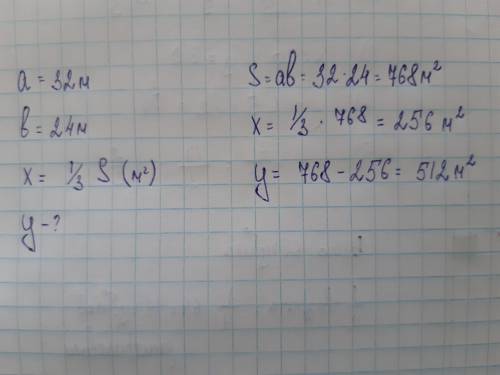 a = 32м
в = 24м
x = 1/3 S (м²)
y - ?
S = ab = 32 · 24 = 768 м²
x = 1/3 · 768 = 256 м²
y = 768 - 256 = 512 м²